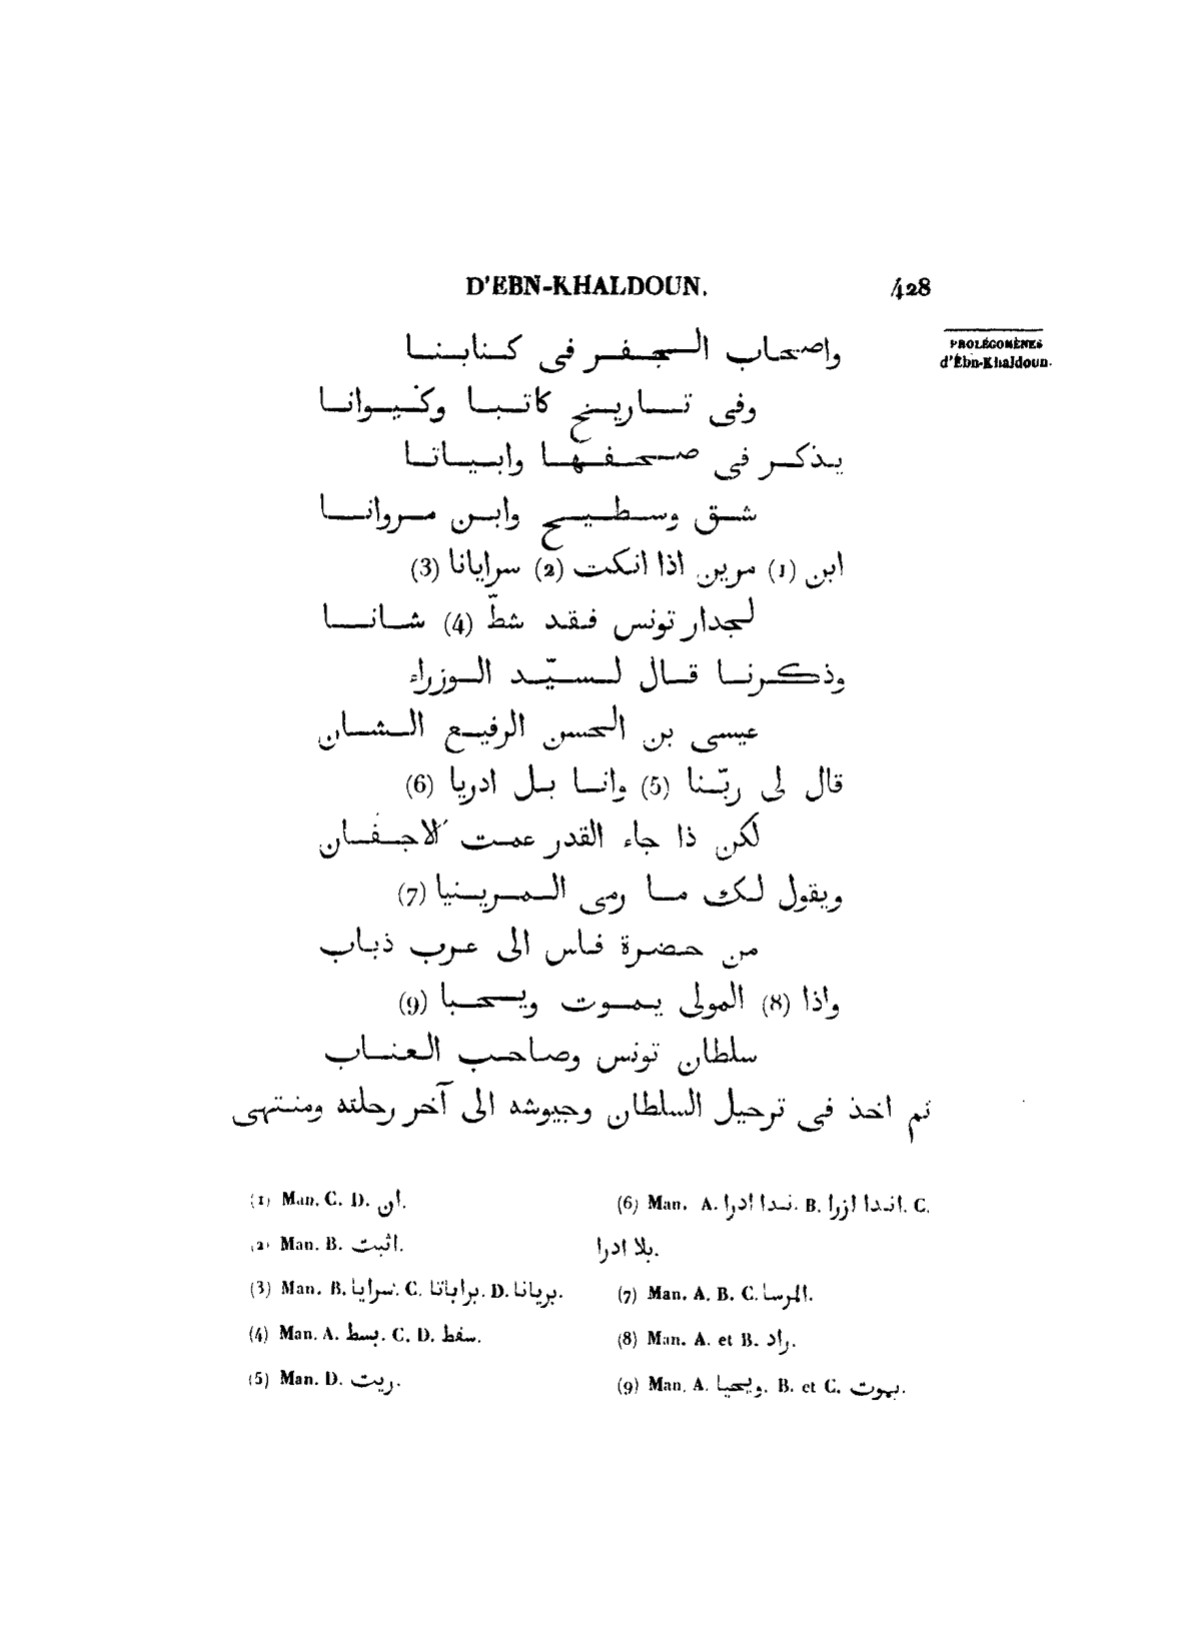 D'EBN-KHALDOUN. 428
PROLÉGOMÈNES
d'Ebn-Khaldoun.
واصحاب الجفر فى كتابنا
وفى تاريخ كاتبا وكيوانا
يذكر فى صحفها وابياتا
شق وسطيح وابن مروانا
ابن (1) مرين اذا انكت (2) سرايانا (3)
لجدار تونس فقد شطّ (4) شانا
وذكرنا قال لسيّد الوزراء
عيسى بن الحسن الرفيع الشان
قال لى ربّنا (5) وانا بل ادريا (6)
لكن ذا جاء القدر عمت الاجفان
ويقول لك ما رمى المرينيا (7)
من حضرة فاس الى عرب ذباب
واذا (8) المولى يموت ويحبا (9)
سلطان تونس وصاحب العناب
ثم اخذ فى ترحيل السلطان وجيوشه الى آخر رحلته ومنتهى
(1) Man. C. D. ان.
(2) Man. B. اثبت.
(3) Man. B. سرايا. C. براباتا. D. بريانا.
(4) Man. A. بسط. C. D. سفط.
(5) Man. D. ريت.
(6) Man. A. ندا ادرا. B. اندا ازرا. C.
بلا ادرا.
(7) Man. A. B. C. المرسا.
(8) Man. A. et B. راد.
(9) Man. A. ويحيا. B. et C. بموت.